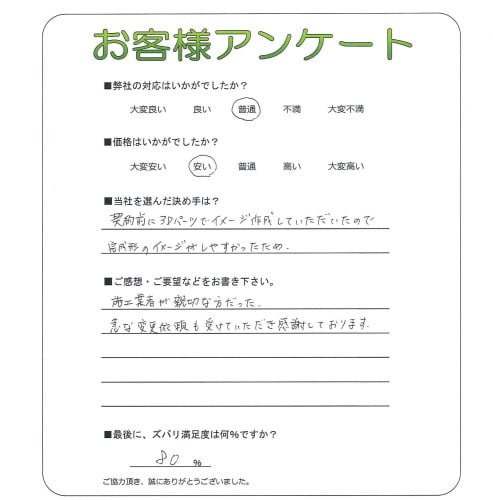 お客様アンケート
■弊社の対応はいかがでしたか？
大変良い 良い 普通 不満 大変不満
■価格はいかがでしたか？
大変安い 安い 普通 高い 大変高い
■当社を選んだ決め手は？
契約前に3Dパーツでイメージ作成していただいたので
完成形のイメージがしやすかったため.
■ご感想・ご要望などをお書き下さい。
施工業者が親切な方だった.
急な変更依頼も受けていただき感謝しております.
■最後に、ズバリ満足度は何%ですか？
80 %
ご協力頂き、誠にありがとうございました。